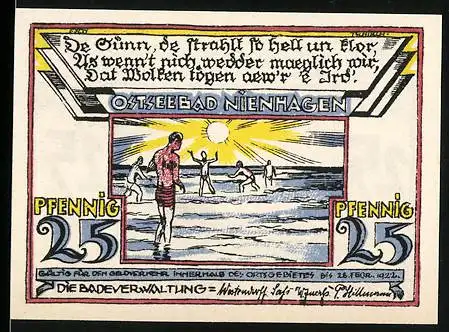 De Sünn, de strahlt so hell un klor,
As wenn't nich wedder maeglich wir,
Dat Wolken tögen aew'r e Ird'.
OSTSEEBAD NIENHAGEN
PFENNIG PFENNIG
25 25
GÜLTIG FÜR DEN GELDVERKEHR INNERHALB DES ORTSGEBIETES BIS 28. FEBR. 1922.
DIE BADEVERWALTUNG =